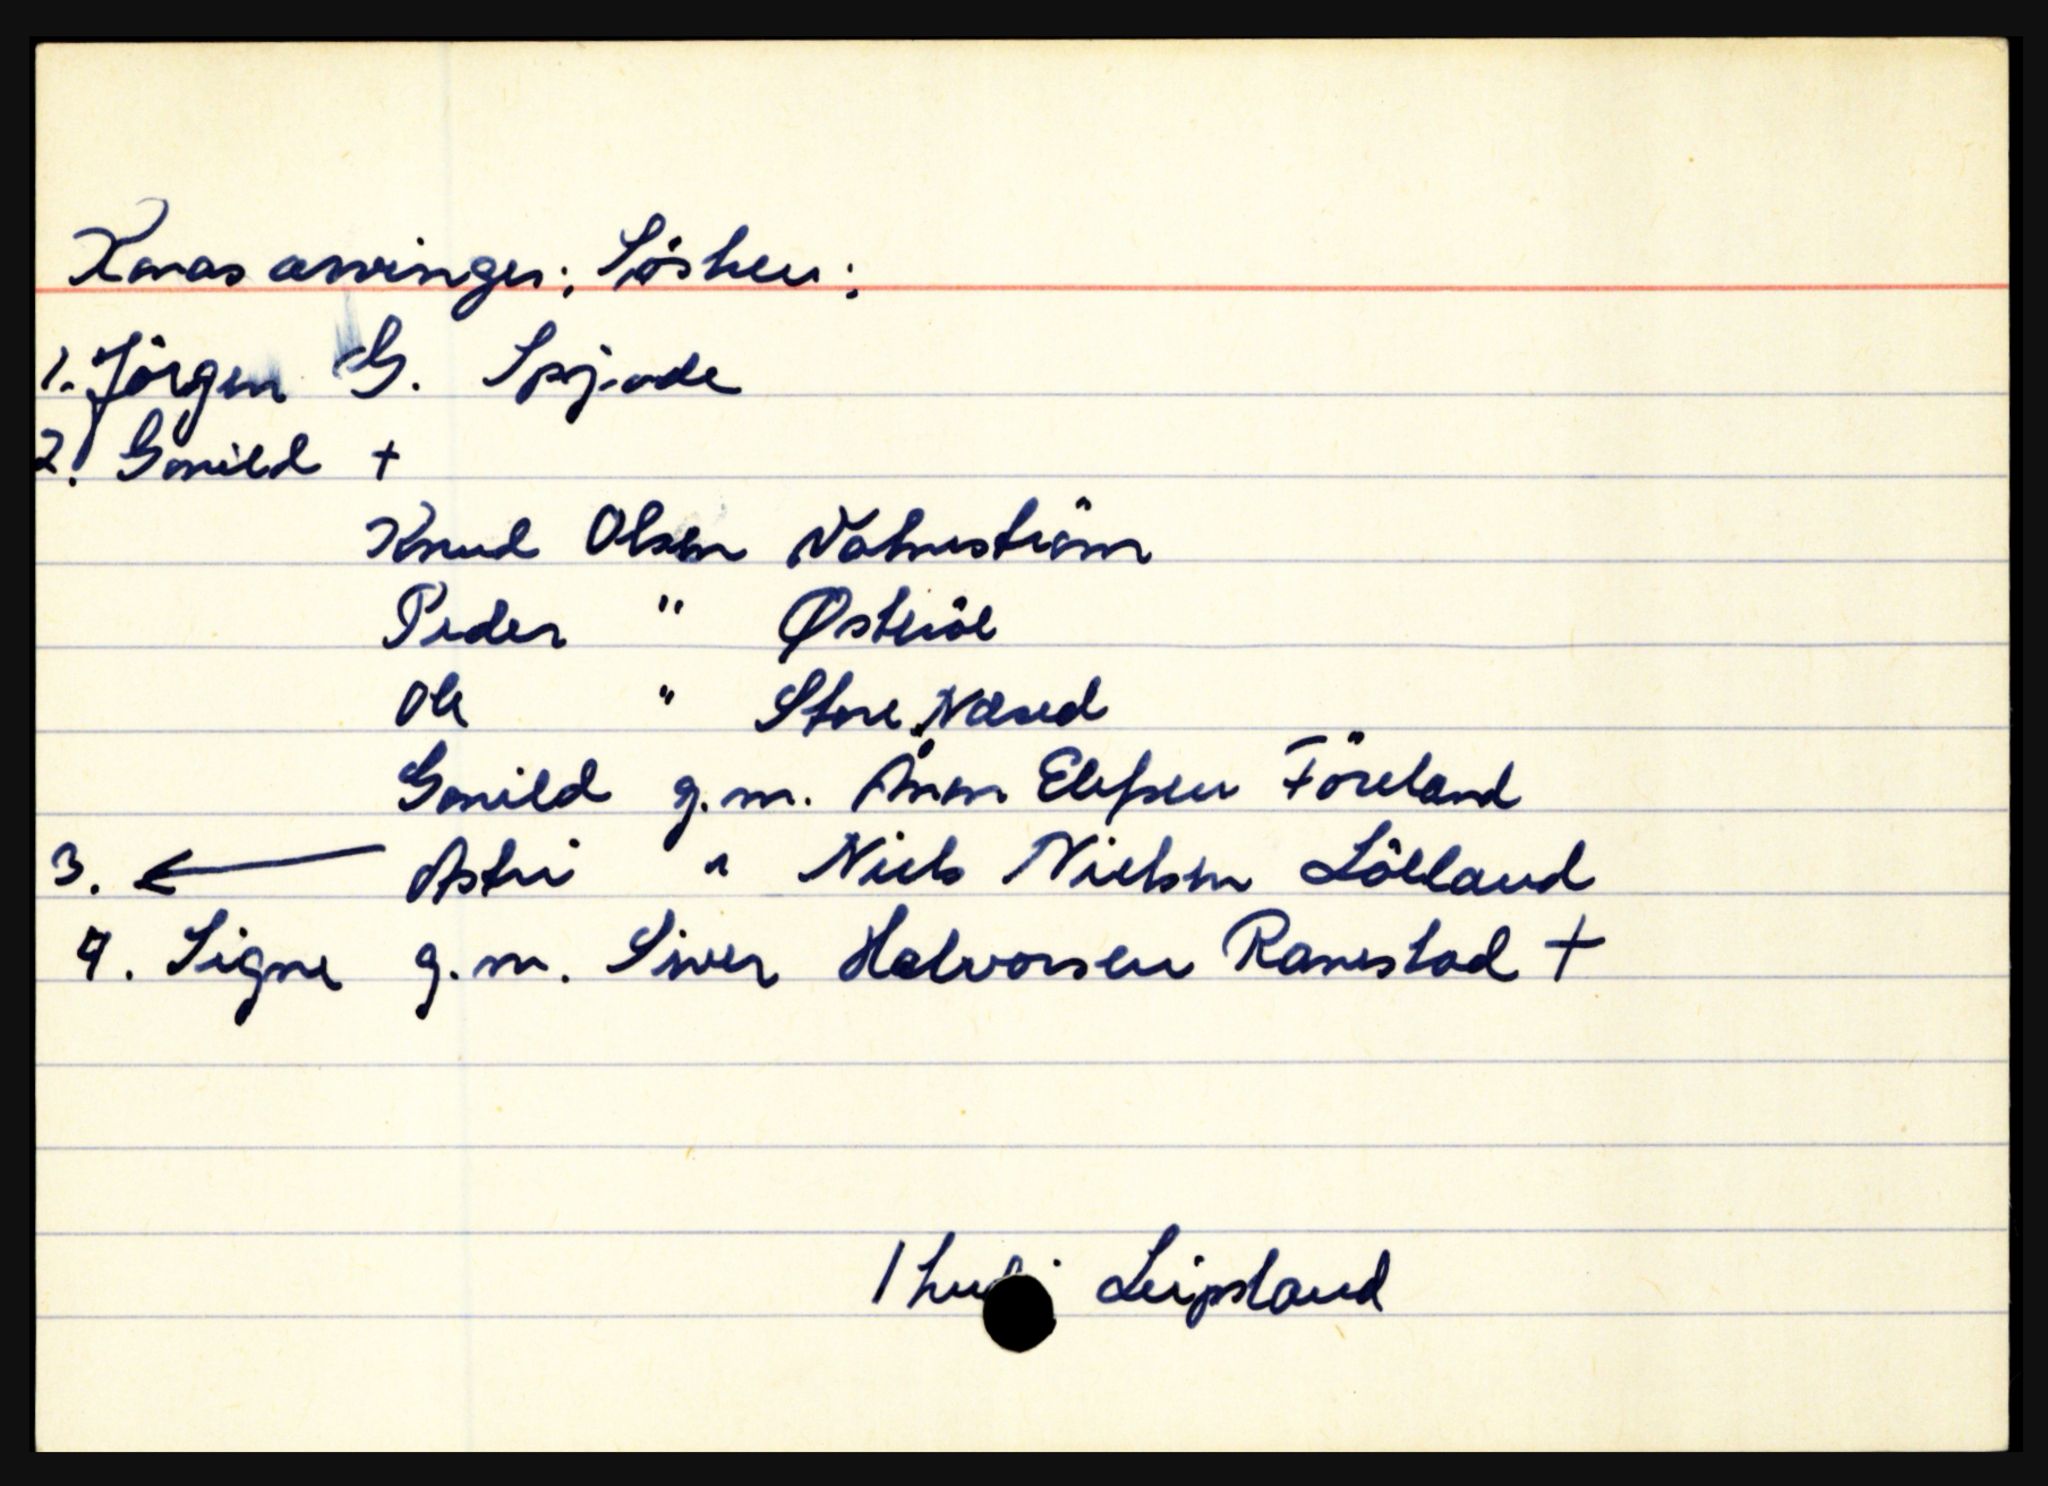 Konas arvinger; Sösken;
1. Jörgen G. Spijode
2. Gonild +
Knud Olsen Valneström
Peder " Østeröl
Ole " Store Næsed
Gonild g.m. Ånen Elefsen Föreland
3. ← Astri " Niels Nielsen Lölland
4. Signe g.m. Siver Halvorsen Ranestad +
1 hud i Leipsland